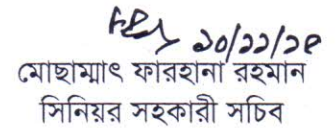 ২০/১১/২৫
মোছাম্মাৎ ফারহানা রহমান
সিনিয়র সহকারী সচিব